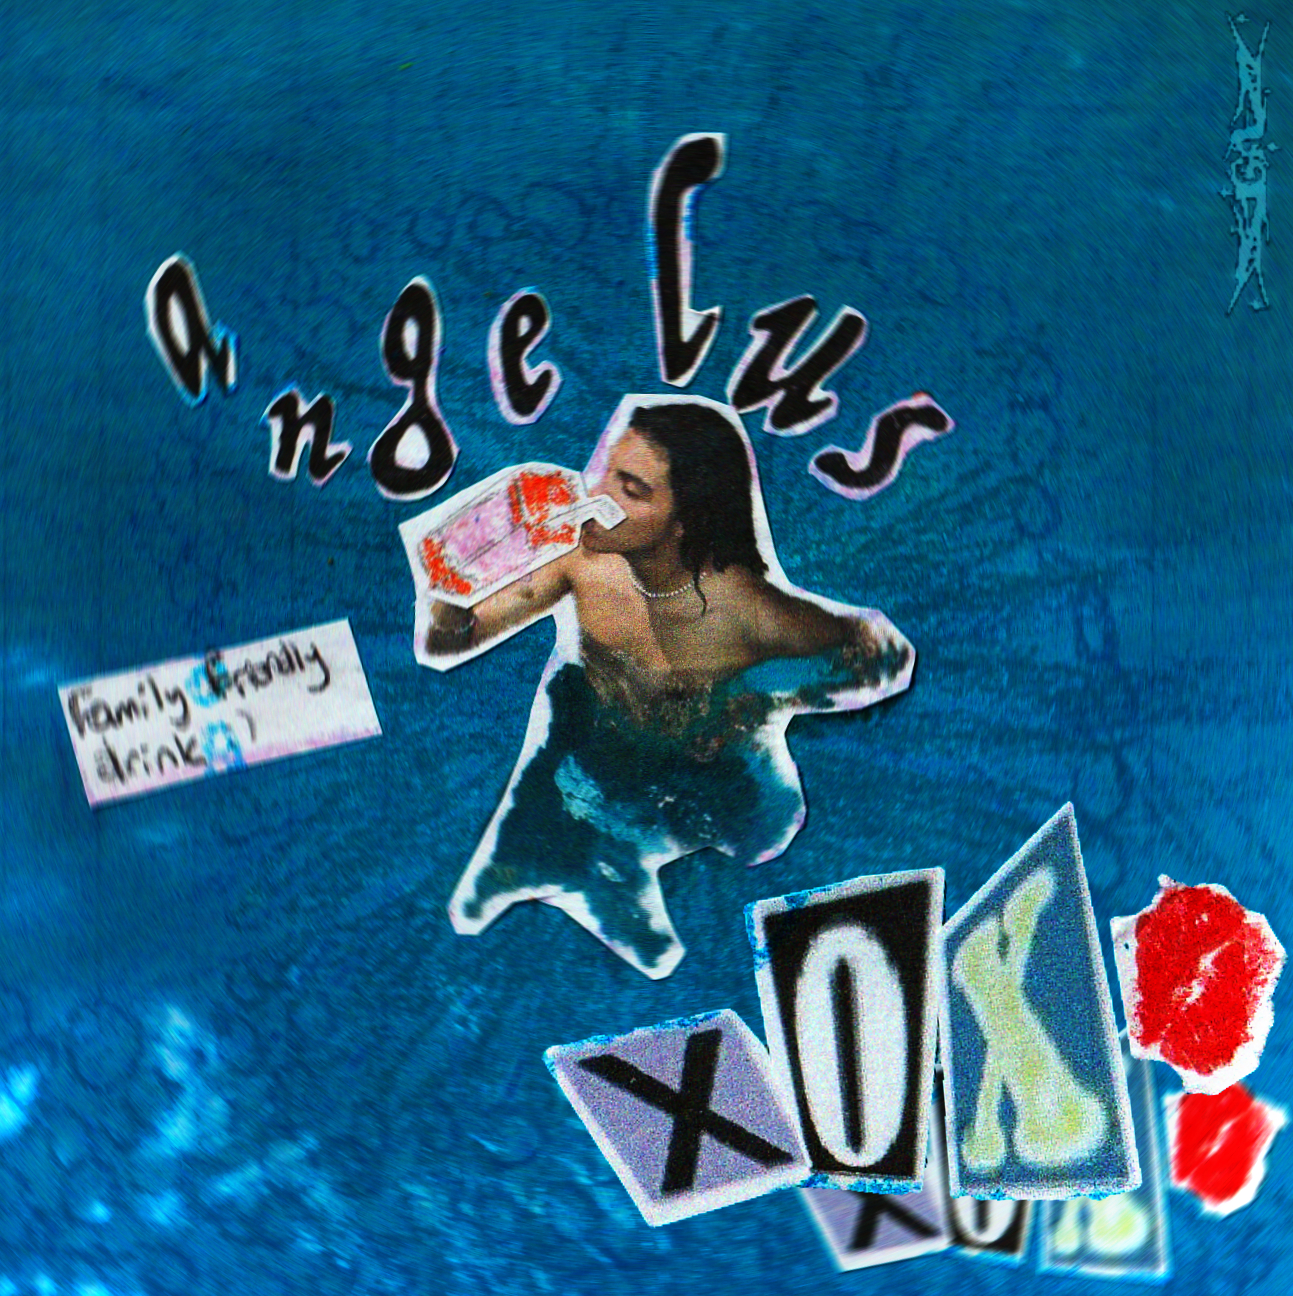 angelus
Family friendly
drink :)
XOX
XOX